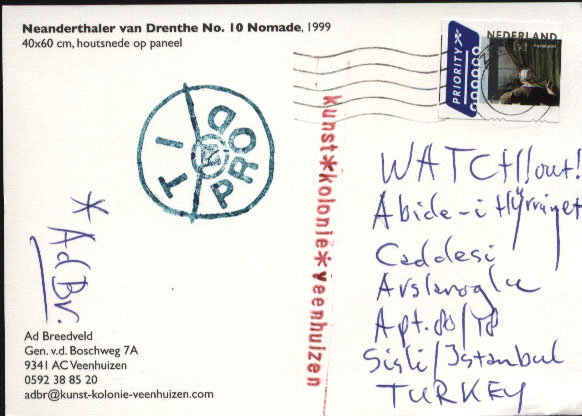 Neanderthaler van Drenthe No. 10 Nomade, 1999
40x60 cm, houtsnede op paneel
PRIORITY
NEDERLAND
TI PROD
kunst*kolonie*veenhuizen
WATCH!!out!
Abide-i Hürriyet
Caddesi
Arslanoglu
Apt. 80/18
Sisli/Istanbul
TURKEY
*AdBr.
Ad Breedveld
Gen. v.d. Boschweg 7A
9341 AC Veenhuizen
0592 38 85 20
adbr@kunst-kolonie-veenhuizen.com